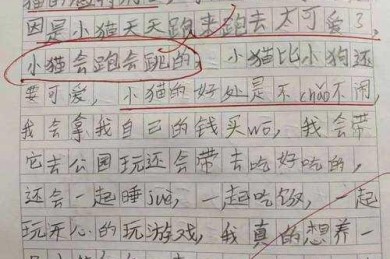 因是小猫天天跑来跑去太可爱了，
小猫会跑会跳的，小猫比小狗还
要可爱，小猫的好处是不chǎo不闹，
我会拿我自己的钱买wō，我会带
它去公园玩还会带去吃好吃的，
还会一起睡jiào，一起吃饭，一起
玩开心的玩游戏，我真的想养一